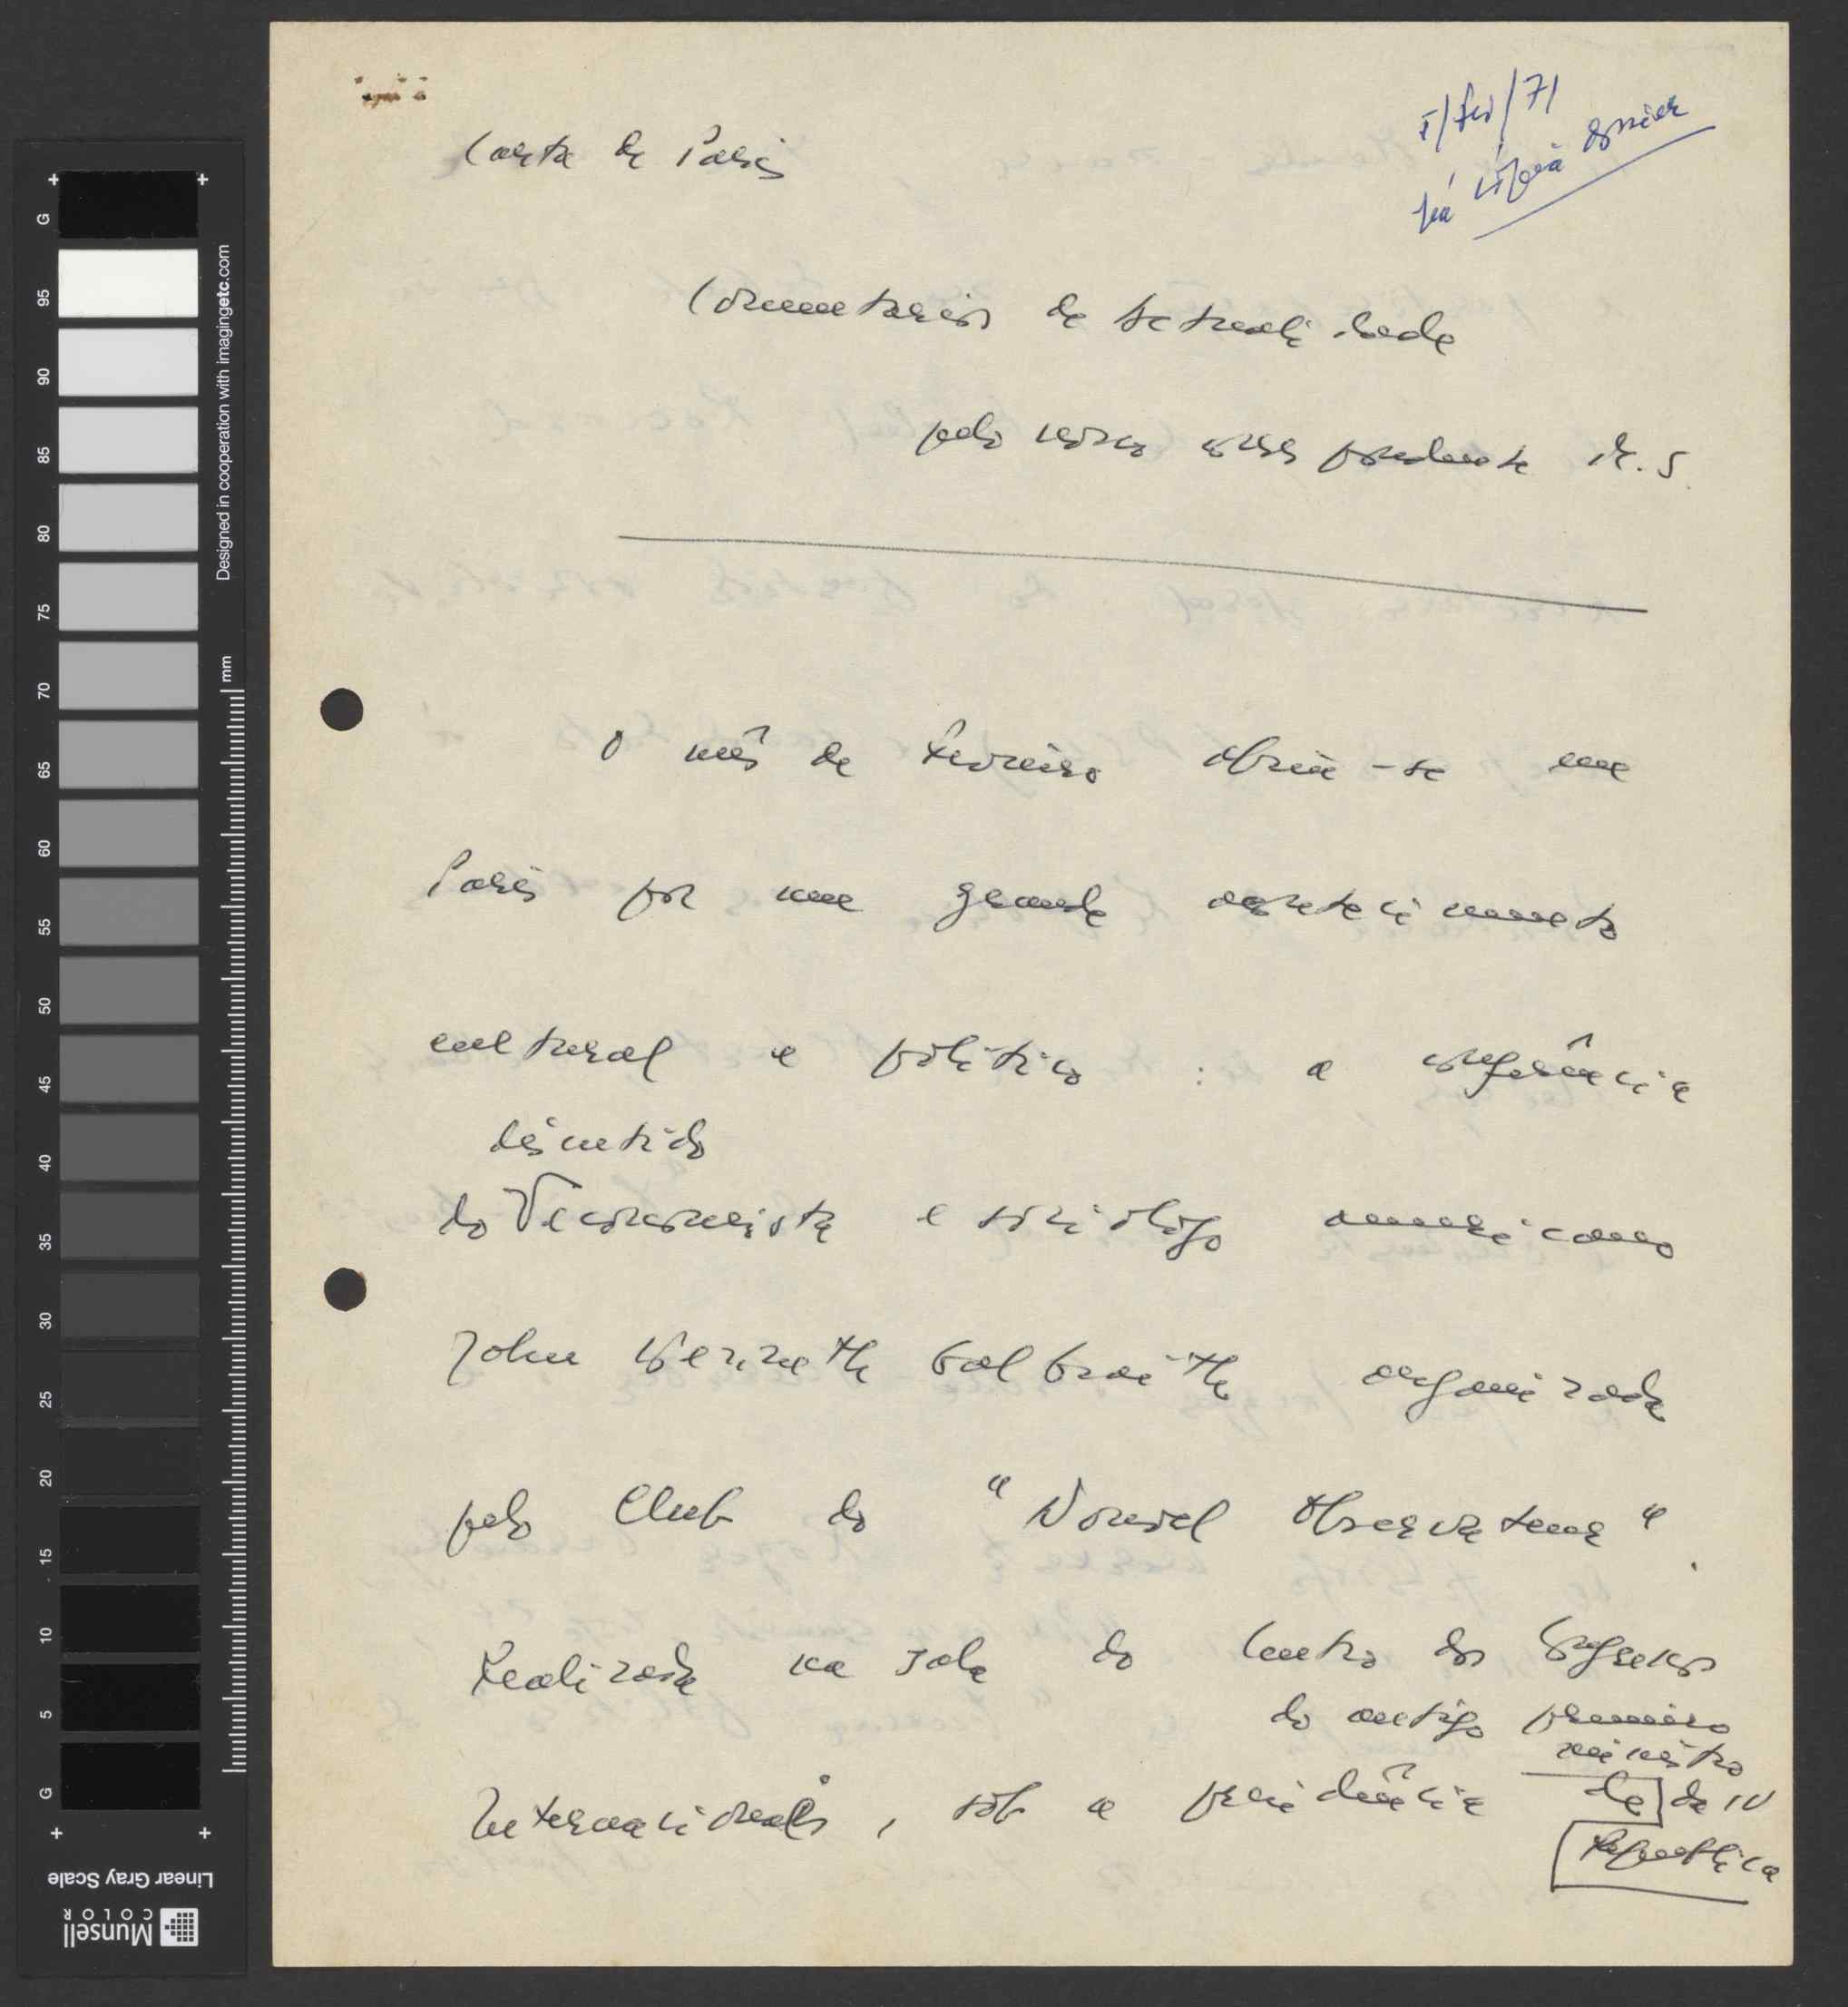 Carta de Paris
/fev/71
há cópia
Comentários de Actualidade
pelo nosso correspondente M. S.
O mês de Fevereiro abriu-se em
Paris por um grande acontecimento
cultural e político : a conferência
discutido
do economista e sociólogo americano
John Kenneth Galbraith organizada
pelo Club do "Nouvel Observateur".
Realizada na sala do Centro dos Congressos
do antigo primeiro
ministro
Internacionais, sob a presidência de da IV
República
G
95
90
85
80
75
70
65
60
55
50
45
40
35
30
25
20
15
10
5
G
mm
Designed in cooperation with imagingetc.com
Linear Gray Scale
Munsell
COLOR